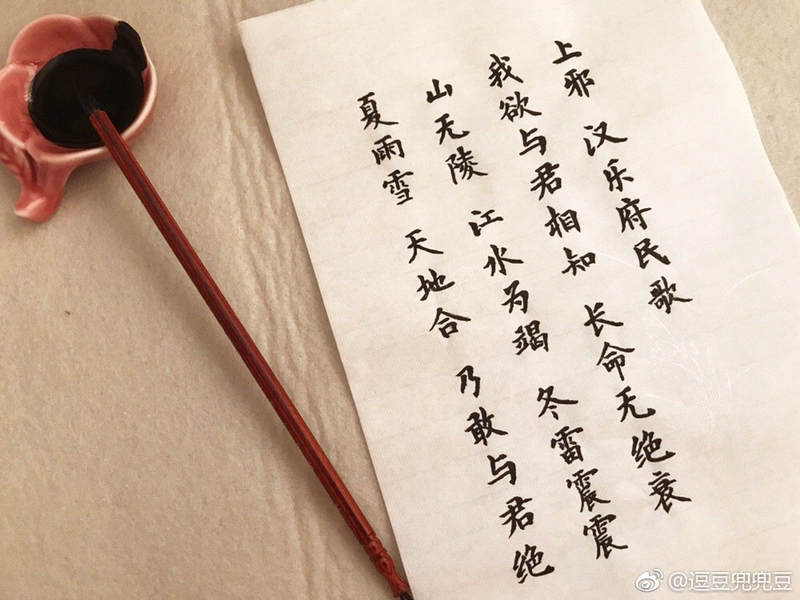 上邪 汉乐府民歌
我欲与君相知 长命无绝衰
山无陵 江水为竭 冬雷震震
夏雨雪 天地合 乃敢与君绝
@逗豆兜兜豆